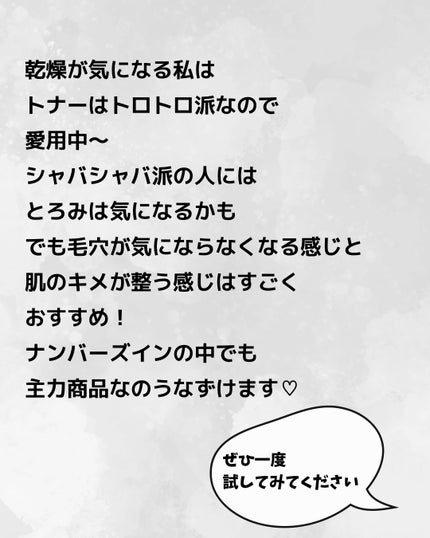 乾燥が気になる私は
トナーはトロトロ派なので
愛用中〜
シャバシャバ派の人には
とろみは気になるかも
でも毛穴が気にならなくなる感じと
肌のキメが整う感じはすごく
おすすめ！
ナンバーズインの中でも
主力商品なのうなずけます♡
ぜひ一度
試してみてください